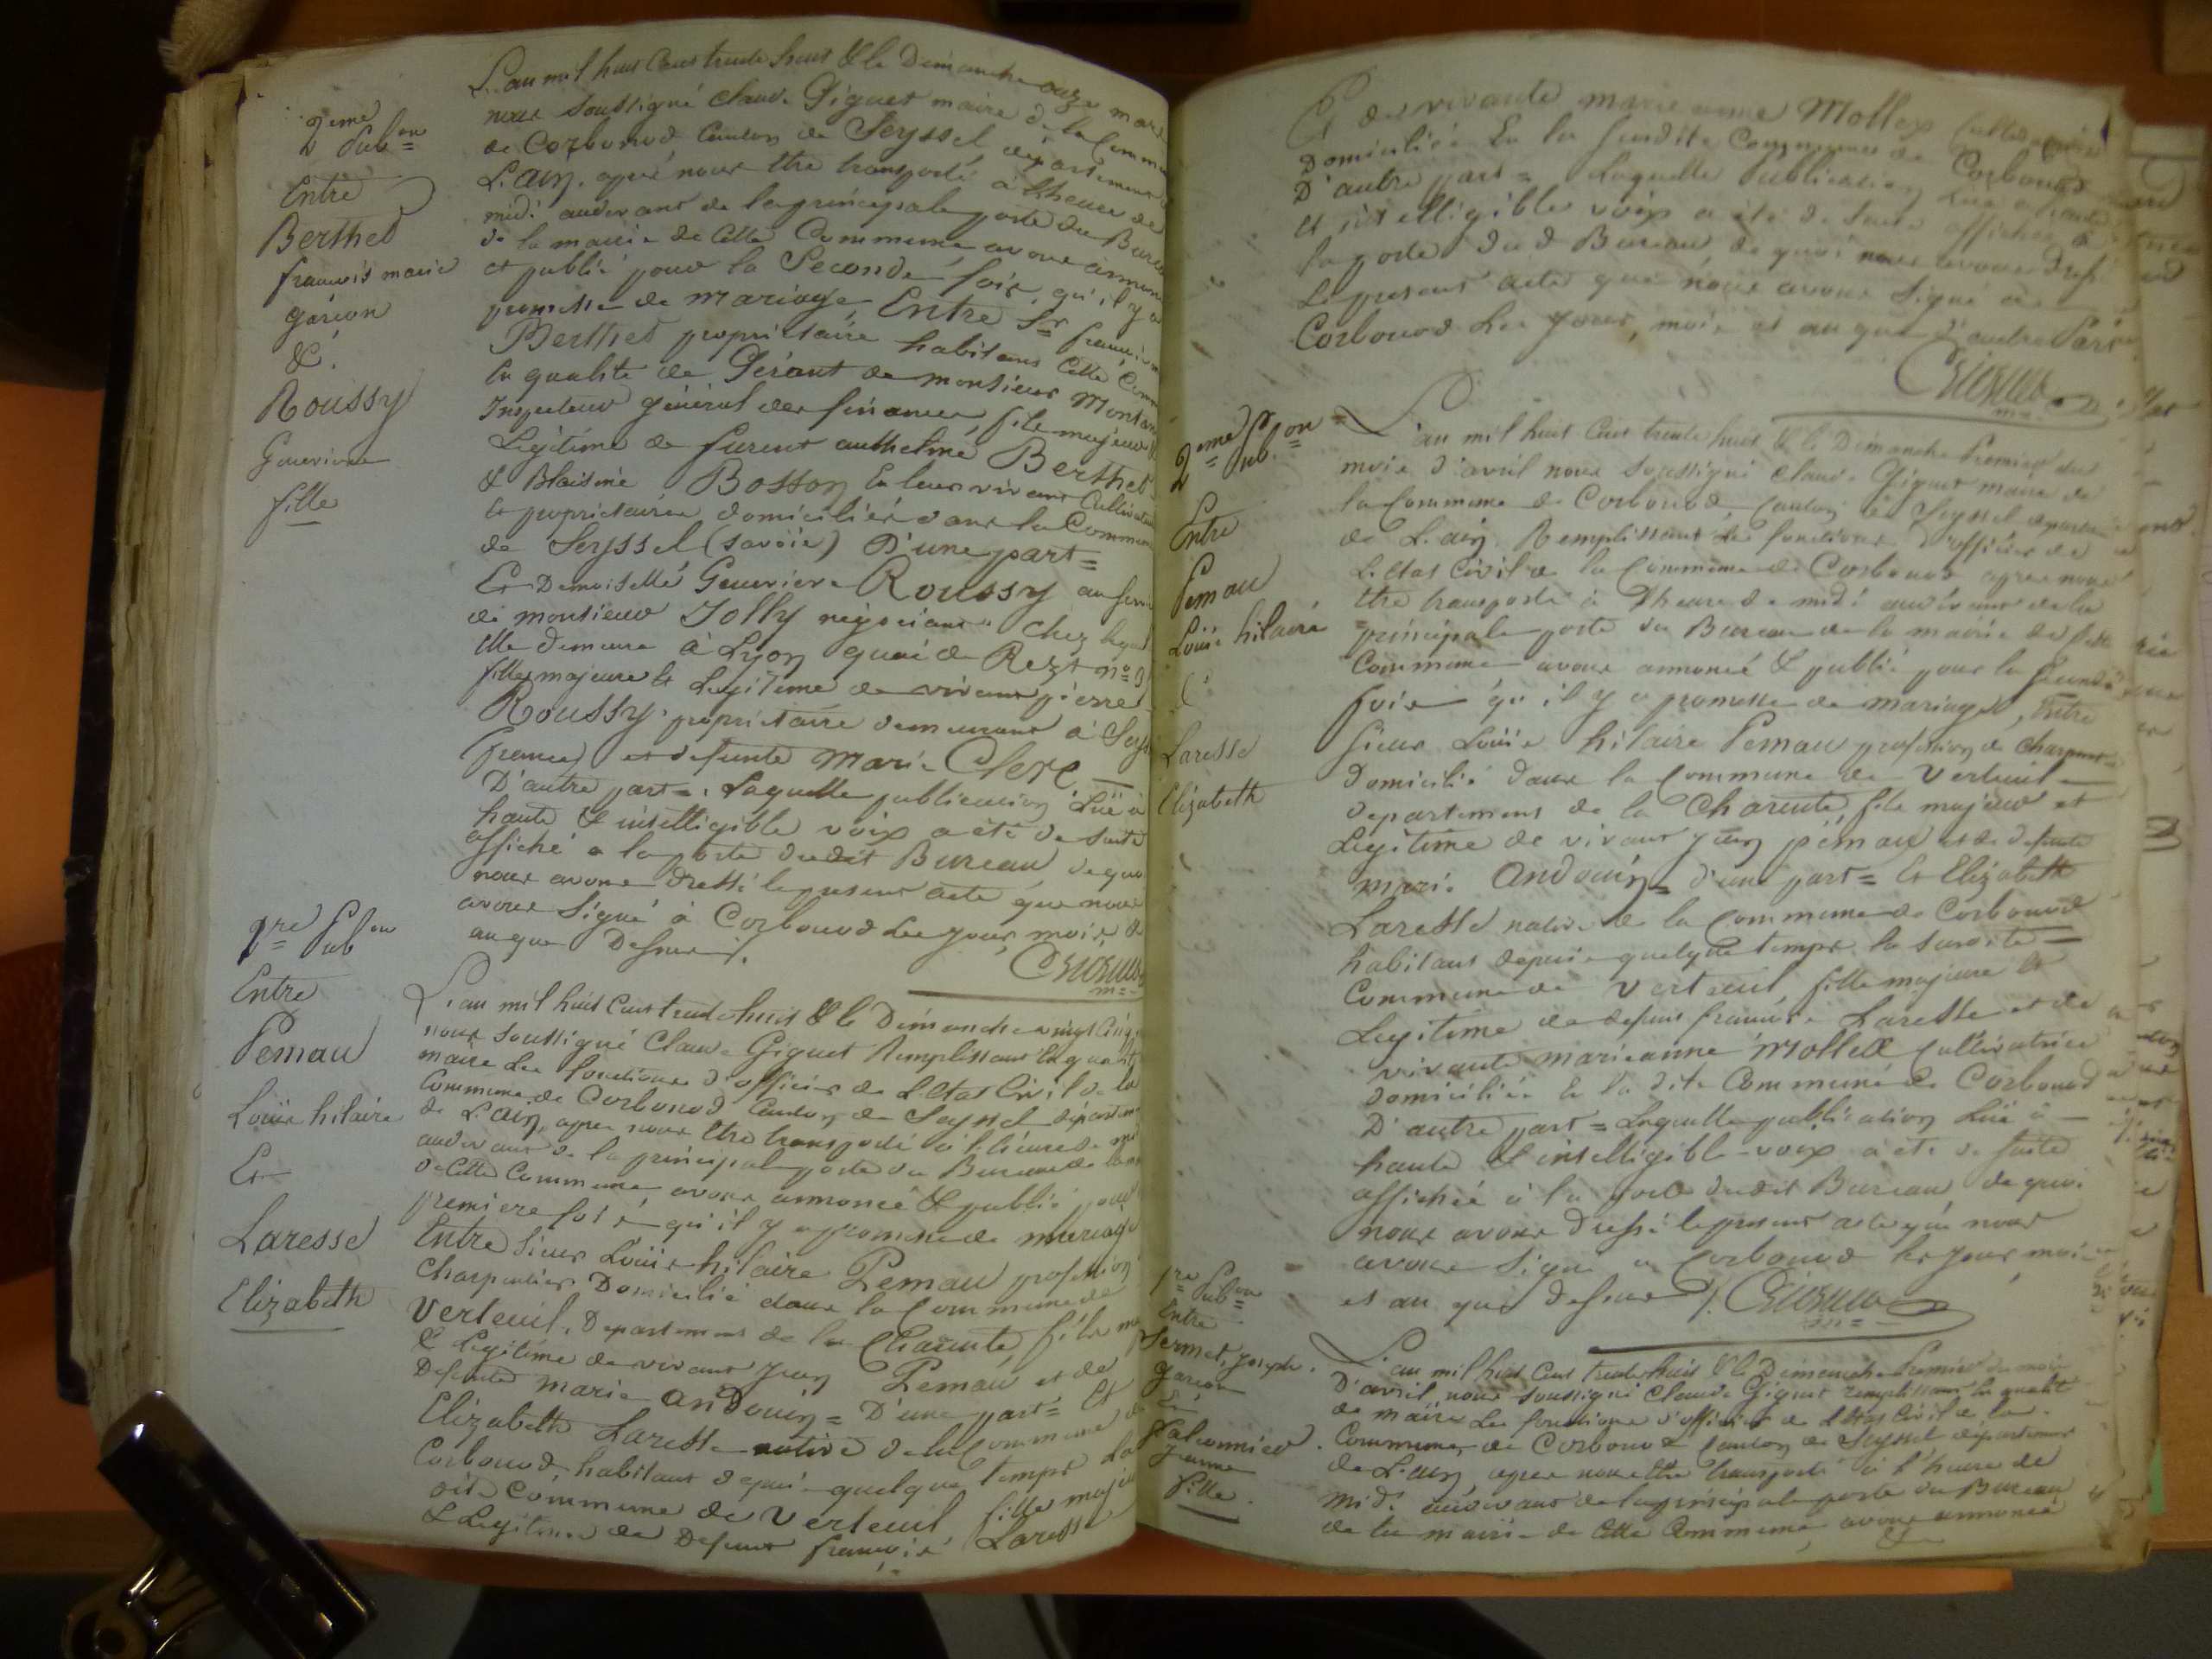 2eme Pub.on
Entre
Berthet
francois marie
garcon
&.
Roussy
Genevieve
fille
L'an mil huit cent trente huit & le Dimanche onze mars
nous soussigné claude Giguet maire de la Commune
de Corbonod Canton de Seyssel département de
L'ain, apré nous etre transporté a l'heure de
midi audevant de la principale porte du Bureau
de la mairie de Cette Commune avons annoncé
et publié pour la Seconde fois, qu'il y a
promesse de mariage, Entre Sr françois
Berthet propriétaire habitant Cette Commune
En qualité de Gérant de monsieur Montan
Inspecteur général des finances, fils majeur &
Legitime de furent authelme Berthet
& Blaisine Bosson En leur vivant Cultivateurs
et propriétaires domiciliés dans la Commune
de Seyssel (savoie) D'une part =
Et Demoiselle Genevieve Roussy au service
de monsieur Jolly négociant chez lequel
Elle demeure à Lyon quai de Retz no= 3
fille majeure et Legitime de vivant pierre
Roussy propriétaire demeurant à Seyssel
(france) et defunte Marie Clerc —
D'autre part =. Laquelle publication Lue à
haute & intelligible voix a été de suite
affiché a la porte dudit Bureau de quoi
nous avons dressé le present acte que nous
avons Signé à Corbonod Les jour, mois &
an que Dessus ./.
1re Pub.on
Entre
Pemau
Louis hilaire
Et
Laresse
Elizabeth
L'an mil huit cent trente huit & le Dimanche vingt cinq
nous soussigné Claude Giguet Remplissant En qualité
maire Les fonctions d'officier de L'Etat Civil de la
Commune de Corbonod Canton de Seyssel départem
de L'ain, apres nous etre transporté à l'heure de midi
audevant de la principale porte du Bureau de la
de Cette Commune, avons annoncé & publié pour
premiere fois qu'il y a promesse de mariage
Entre Sieur Louis hilaire Pemau profession
Charpentier Domicilié dans la Commune de
Verteuil, Departement de la Charente fils ma
& Legitime de vivant Jean Pemau et de
Defunte Marie Andouin = D'une part = Et
Elizabeth Laresse native de la Commune de
Corbonod, habitant depuis quelque temps La
dite Commune de Verteuil, fille majeure
& Legitime de Defunt françois Laresse
Et de vivante marie anne Mollex Cultivatrice
Domiciliée En la susdite Commune de Corbonod
D'autre part = Laquelle Publication Lue a haute
et intelligible voix a été de suite affichée à
la porte dud Bureau, de quoi nous avons dressé
Le present acte que nous avons Signé à
Corbonod Les jour, mois et an que d'autre Part
2eme Pub.on
Entre
Pemau
Louis hilaire
&
Laresse
Elizabeth
L'an mil huit Cent trente huit & le Dimanche Premier du
mois d'avril nous soussigné claude Giguet maire de
la Commune de Corbonod, Canton de Seyssel departem
de L'ain Remplissant Les fonctions d'officier de
L'Etat Civil de la Commune de Corbonod apres nous
etre transporté à l'heure de midi audevant de la
principale porte du Bureau de la mairie de Cette
Commune avons annoncé & publié pour la seconde
fois qu'il y a promesse de mariage, Entre
Sieur Louis hilaire Pemau profession de charpent
domicilié dans la Commune de Verteuil —
departement de la Charente, fils majeur et
Legitime de vivant jean pemau et de defunte
marie Andouin = d'une part = Et Elizabeth
Laresse native de la Commune de Corbonod
habitant depuis quelque temps la susdite —
Commune de Verteuil, fille majeure et
Legitime de defunt françois Laresse et de
vivante marieanne mollex cultivatrice
domiciliée En la dite Commune de Corbonod
D'autre part = Laquelle publication Lue à —
haute & intelligible voix a été de suite
affichée à la porte dudit Bureau, de quoi
nous avons dressé le present acte que nous
avons Signé a Corbonod les jour, mois
et an que dessus ./.
1re Pub.on
Entre
Sermet, joseph.
garcon
&
falconnier
jeanne
fille.
L'an mil huit Cent trente huit & le Dimanche Premier du mois
D'avril nous soussigné Claude Giguet remplissant En qualité
de maire Les fonctions d'officier de L'Etat Civil de la
Commune de Corbonod Canton de Seyssel departement
de L'ain, apres nous etre transporté à l'heure de
midi audevant de la principale porte du Bureau
de la mairie de Cette Commune, avons annoncé